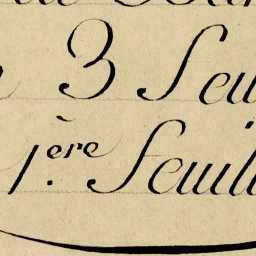 3 Feu
1.ère Feuill